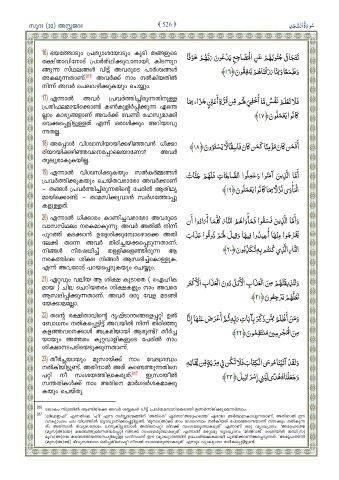 സൂറ: (32) അസ്സജദഃ
﴾ 526 ﴿
16) ഭയത്തോടും പ്രത്യാശയോടും കൂടി തങ്ങളുടെ
രക്ഷിതാവിനോട് പ്രാർത്ഥിക്കുവാനായി, കിടന്നുറ
ങ്ങുന്ന സ്ഥലങ്ങൾ വിട്ട് അവരുടെ പാർശ്വങ്ങൾ
അകലുന്നതാണ്. അവർക്ക് നാം നൽകിയതിൽ
നിന്ന് അവർ ചെലവഴിക്കുകയും ചെയ്യും.
تَتَجَافَىٰ جُنُوبُهُمْ عَنِ الْمَضَاجِعِ يَدْعُونَ رَبَّهُمْ خَوْفًا
وَطَمَعًا وَمِمَّا رَزَقْنَاهُمْ يُنفِقُونَ ﴿١٦﴾
17) എന്നാൽ അവർ പ്രവർത്തിച്ചിരുന്നതിനുള്ള
പ്രതിഫലമായിക്കൊണ്ട് കൺകുളിർപ്പിക്കുന്ന എന്തെ
ല്ലാം കാര്യങ്ങളാണ് അവർക്ക് വേണ്ടി രഹസ്യമാക്കി
വെക്കപ്പെട്ടിട്ടുള്ളത് എന്ന് ഒരാൾക്കും അറിയാവു
ന്നതല്ല.
فَلَا تَعْلَمُ نَفْسٌ مَّا أُخْفِيَ لَهُم مِّن قُرَّةِ أَعْيُنٍ جَزَاءً بِمَا
كَانُوا يَعْمَلُونَ ﴿١٧﴾
18) അപ്പോൾ വിശ്വാസിയായിക്കഴിഞ്ഞവൻ ധിക്കാ
രിയായിക്കഴിഞ്ഞവനെപ്പോലെയാണോ? അവർ
തുല്യരാകുകയില്ല.
أَفَمَن كَانَ مُؤْمِنًا كَمَن كَانَ فَاسِقًا لَّا يَسْتَوُونَ ﴿١٨﴾
19) എന്നാൽ വിശ്വസിക്കുകയും സൽക്കർമ്മങ്ങൾ
പ്രവർത്തിക്കുകയും ചെയ്തവരാരോ അവർക്കാണ്
– തങ്ങൾ പ്രവർത്തിച്ചിരുന്നതിന്റെ പേരിൽ ആതിഥ്യ
മായിക്കൊണ്ട് – താമസിക്കുവാൻ സ്വർഗത്തോപ്പു
കളുള്ളത്.
أَمَّا الَّذِينَ آمَنُوا وَعَمِلُوا الصَّالِحَاتِ فَلَهُمْ جَنَّاتُ
الْمَأْوَىٰ نُزُلًا بِمَا كَانُوا يَعْمَلُونَ ﴿١٩﴾
20) എന്നാൽ ധിക്കാരം കാണിച്ചവരാരോ അവരുടെ
വാസസ്ഥലം നരകമാകുന്നു. അവർ അതിൽ നിന്ന്
പുറത്ത് കടക്കാൻ ഉദ്ദേശിക്കുമ്പോഴൊക്കെ അതി
ലേക്ക് തന്നെ അവർ തിരിച്ചയക്കപ്പെടുന്നതാണ്.
നിങ്ങൾ നിഷേധിച്ച് തള്ളിക്കളഞ്ഞിരുന്ന ആ
നരകത്തിലെ ശിക്ഷ നിങ്ങൾ ആസ്വദിച്ച്കൊള്ളുക.
എന്ന് അവരോട് പറയപ്പെടുകയും ചെയ്യും.
وَأَمَّا الَّذِينَ فَسَقُوا فَمَأْوَاهُمُ النَّارُ كُلَّمَا أَرَادُوا أَن
يَخْرُجُوا مِنْهَا أُعِيدُوا فِيهَا وَقِيلَ لَهُمْ ذُوقُوا عَذَابَ
النَّارِ الَّذِي كُنتُم بِهِ تُكَذِّبُونَ ﴿٢٠﴾
21) ഏറ്റവും വലിയ ആ ശിക്ഷ കൂടാതെ ( ഐഹിക
മായ ) ചില ചെറിയതരം ശിക്ഷകളും നാം അവരെ
ആസ്വദിപ്പിക്കുന്നതാണ്. അവർ ഒരു വേള മടങ്ങി
യേക്കാമല്ലോ.
وَلَنُذِيقَنَّهُم مِّنَ الْعَذَابِ الْأَدْنَىٰ دُونَ الْعَذَابِ الْأَكْبَرِ
لَعَلَّهُمْ يَرْجِعُونَ ﴿٢١﴾
22) തന്റെ രക്ഷിതാവിന്റെ ദൃഷ്ടാന്തങ്ങളെപ്പറ്റി ഉൽ
ബോധനം നൽകപ്പെട്ടിട്ട് അവയിൽ നിന്ന് തിരിഞ്ഞു
കളഞ്ഞവനെക്കാൾ അക്രമിയായി ആരുണ്ട്? തീർച്ച
യായും അത്തരം കുറ്റവാളികളുടെ പേരിൽ നാം
ശിക്ഷാനടപടിയെടുക്കുന്നതാണ്.
وَمَنْ أَظْلَمُ مِمَّن ذُكِّرَ بِآيَاتِ رَبِّهِ ثُمَّ أَعْرَضَ عَنْهَا إِنَّا
مِنَ الْمُجْرِمِينَ مُنتَقِمُونَ ﴿٢٢﴾
23) തീർച്ചയായും മൂസായ്ക്ക് നാം വേദഗ്രന്ഥം
നൽകിയിട്ടുണ്ട്. അതിനാൽ അത് കണ്ടെത്തുന്നതിനെ
പറ്റി നീ സംശയത്തിലാകരുത്. ഇസ്രായീൽ
സന്തതികൾക്ക് നാം അതിനെ മാർഗദർശകമാക്കു
കയും ചെയ്തു.
وَلَقَدْ آتَيْنَا مُوسَى الْكِتَابَ فَلَا تَكُن فِي مِرْيَةٍ مِّن لِّقَائِهِ
وَجَعَلْنَاهُ هُدًى لِّبَنِي إِسْرَائِيلَ ﴿٢٣﴾